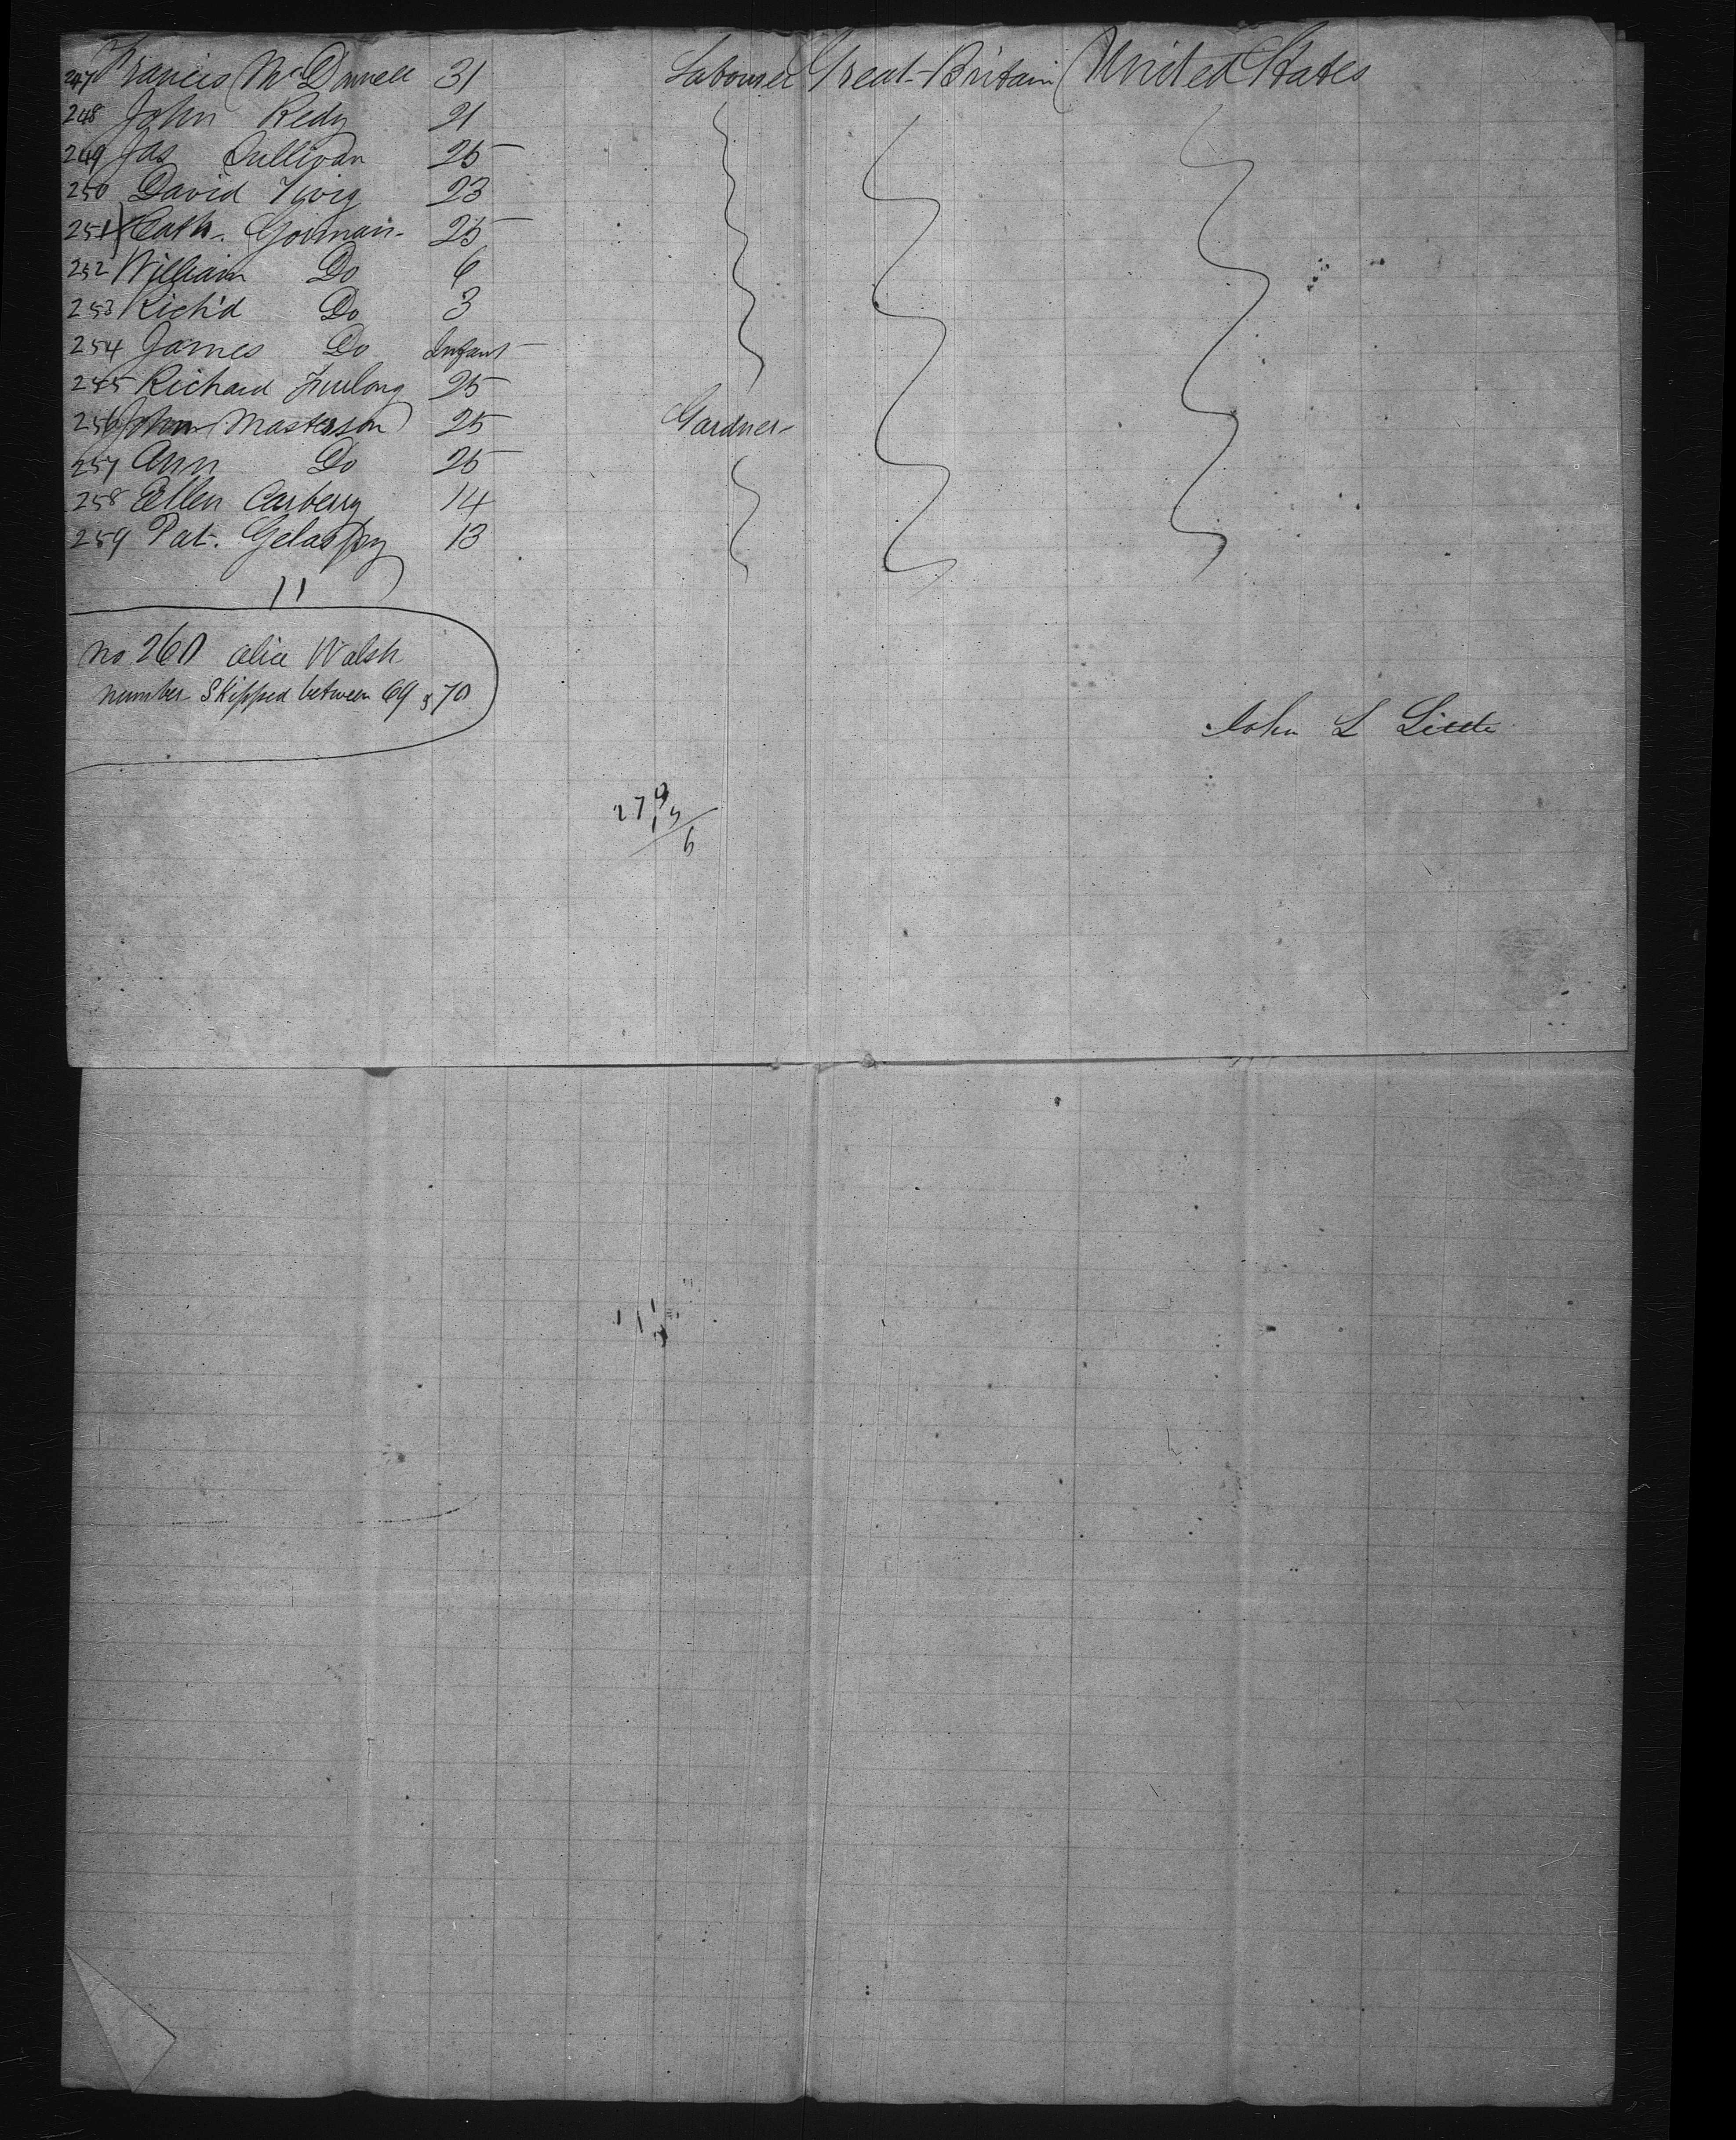 247 Francis McDonnell 31 Labourer Great-Britain United States
248 John Redy 21
249 Jas Sullivan 25
250 David Twig 23
251 Cath. Gorman 25
252 William Do 6
253 Rich'd Do 3
254 James Do Infant
255 Richard Furlong 25
256 John Masterson 25 Gardner
257 Ann Do 25
258 Ellen Carberry 14
259 Pat. 13
11
No 260 Alice Walsh
number Skipped between 69 & 70
John L Little